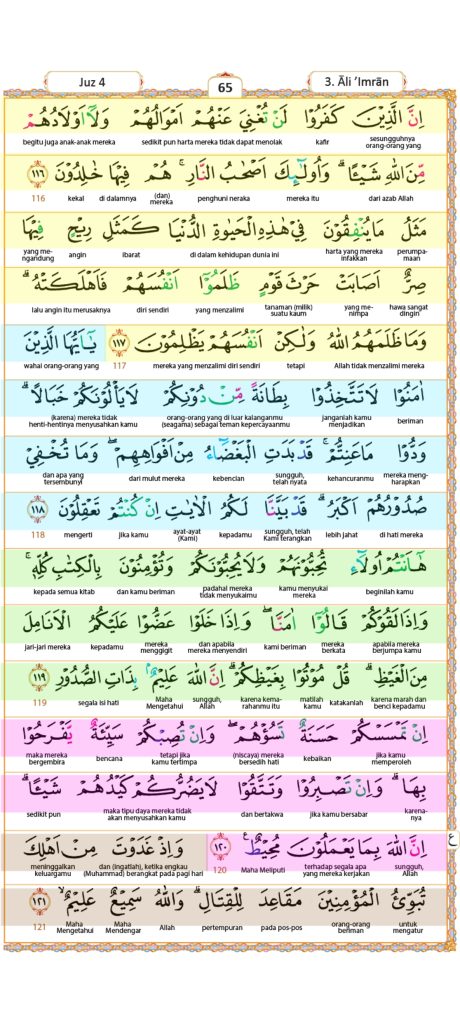 Juz 4
65
3. Āli 'Imrān
اِنَّ الَّذِيْنَ كَفَرُوْا لَنْ تُغْنِيَ عَنْهُمْ اَمْوَالُهُمْ وَلَآ اَوْلَادُهُمْ
sesungguhnya orang-orang yang kafir sedikit pun harta mereka tidak dapat menolak begitu juga anak-anak mereka
مِّنَ اللّٰهِ شَيْـًٔا ۗ وَاُولٰۤىِٕكَ اَصْحٰبُ النَّارِ ۚ هُمْ فِيْهَا خٰلِدُوْنَ ١١٦
dari azab Allah mereka itu penghuni neraka (dan) mereka di dalamnya kekal 116
مَثَلُ مَا يُنْفِقُوْنَ فِيْ هٰذِهِ الْحَيٰوةِ الدُّنْيَا كَمَثَلِ رِيْحٍ فِيْهَا
perumpamaan harta yang mereka infakkan di dalam kehidupan dunia ini ibarat angin yang mengandung
صِرٌّ اَصَابَتْ حَرْثَ قَوْمٍ ظَلَمُوْٓا اَنْفُسَهُمْ فَاَهْلَكَتْهُ ۗ
hawa sangat dingin yang menimpa tanaman (milik) suatu kaum yang menzalimi diri sendiri lalu angin itu merusaknya
وَمَا ظَلَمَهُمُ اللّٰهُ وَلٰكِنْ اَنْفُسَهُمْ يَظْلِمُوْنَ ١١٧ يٰٓاَيُّهَا الَّذِيْنَ
Allah tidak menzalimi mereka tetapi mereka yang menzalimi diri sendiri 117 wahai orang-orang yang
اٰمَنُوْا لَا تَتَّخِذُوْا بِطَانَةً مِّنْ دُوْنِكُمْ لَا يَأْلُوْنَكُمْ خَبَالًاۗ
beriman janganlah kamu menjadikan orang-orang yang di luar kalanganmu (seagama) sebagai teman kepercayaanmu (karena) mereka tidak henti-hentinya menyusahkan kamu
وَدُّوْا مَا عَنِتُّمْۚ قَدْ بَدَتِ الْبَغْضَاۤءُ مِنْ اَفْوَاهِهِمْۖ وَمَا تُخْفِيْ
mereka mengharapkan kehancuranmu sungguh, telah nyata kebencian dari mulut mereka dan apa yang tersembunyi
صُدُوْرُهُمْ اَكْبَرُ ۗ قَدْ بَيَّنَّا لَكُمُ الْاٰيٰتِ اِنْ كُنْتُمْ تَعْقِلُوْنَ ١١٨
di hati mereka lebih jahat sungguh, telah Kami terangkan kepadamu ayat-ayat (Kami) jika kamu mengerti 118
هٰٓاَنْتُمْ اُولَاۤءِ تُحِبُّوْنَهُمْ وَلَا يُحِبُّوْنَكُمْ وَتُؤْمِنُوْنَ بِالْكِتٰبِ كُلِّهٖۚ
beginilah kamu kamu menyukai mereka padahal mereka tidak menyukaimu dan kamu beriman kepada semua kitab
وَاِذَا لَقُوْكُمْ قَالُوْٓا اٰمَنَّاۖ وَاِذَا خَلَوْا عَضُّوْا عَلَيْكُمُ الْاَنَامِلَ
apabila mereka berjumpa kamu mereka berkata kami beriman dan apabila mereka menyendiri mereka menggigit kepadamu jari-jari mereka
مِنَ الْغَيْظِ ۗ قُلْ مُوْتُوْا بِغَيْظِكُمْ ۗ اِنَّ اللّٰهَ عَلِيْمٌ ۢ بِذَاتِ الصُّدُوْرِ ١١٩
karena marah dan benci kepadamu katakanlah matilah kamu karena kemarahanmu itu sungguh, Allah Maha Mengetahui segala isi hati 119
اِنْ تَمْسَسْكُمْ حَسَنَةٌ تَسُؤْهُمْۖ وَاِنْ تُصِبْكُمْ سَيِّئَةٌ يَّفْرَحُوْا
jika kamu memperoleh kebaikan (niscaya) mereka bersedih hati tetapi jika kamu tertimpa bencana maka mereka bergembira
بِهَا ۗ وَاِنْ تَصْبِرُوْا وَتَتَّقُوْا لَا يَضُرُّكُمْ كَيْدُهُمْ شَيْـًٔا ۗ
karenanya jika kamu bersabar dan bertakwa maka tipu daya mereka tidak akan menyusahkan kamu sedikit pun
اِنَّ اللّٰهَ بِمَا يَعْمَلُوْنَ مُحِيْطٌ ١٢٠ وَاِذْ غَدَوْتَ مِنْ اَهْلِكَ
sungguh, Allah terhadap segala apa yang mereka kerjakan Maha Meliputi 120 dan (ingatlah), ketika engkau (Muhammad) berangkat pada pagi hari meninggalkan keluargamu
ع
تُبَوِّئُ الْمُؤْمِنِيْنَ مَقَاعِدَ لِلْقِتَالِ ۗ وَاللّٰهُ سَمِيْعٌ عَلِيْمٌۙ ١٢١
untuk mengatur orang-orang beriman pada pos-pos pertempuran Allah Maha Mendengar Maha Mengetahui 121